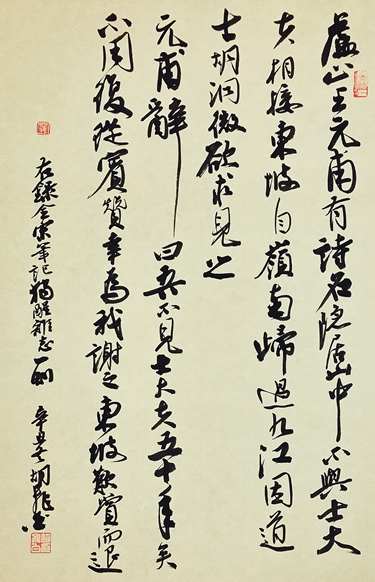 廬山王元甫有詩名隱居山中不與士大
夫相接東坡自嶺南歸過九江因道
士胡洞微欲求見之
元甫辭曰吾不見士大夫五十年矣
不用復從賓贊幸為我謝之東坡歎賞而退
右錄全宋筆記獨醒雜志一則 辛丑 胡 書